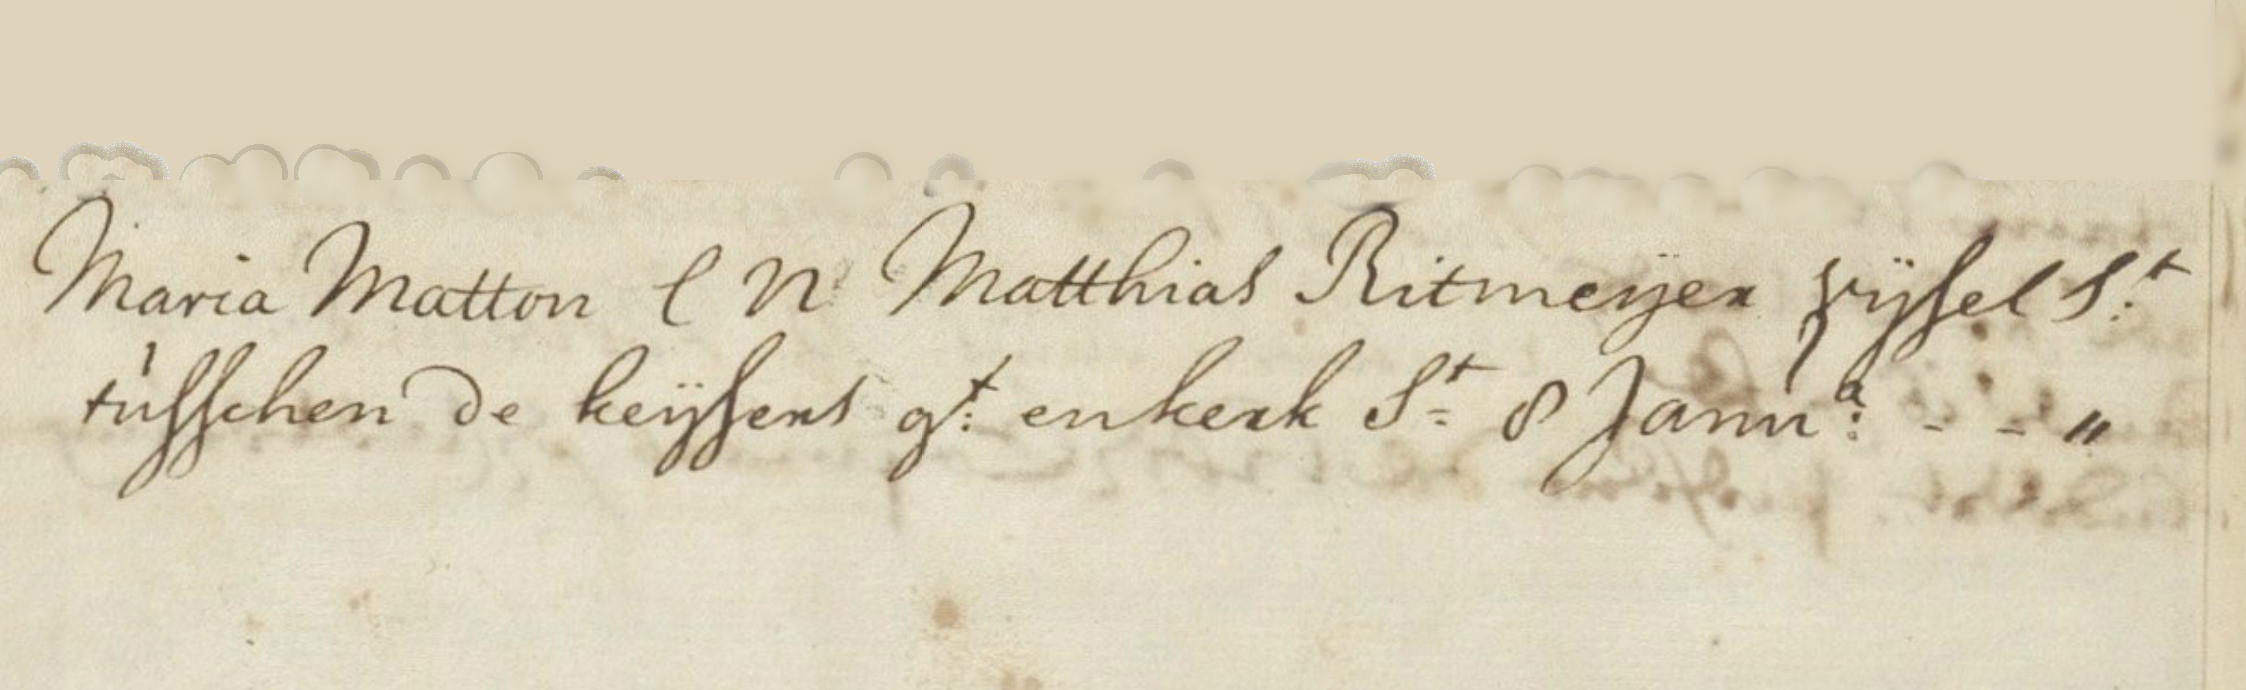 Maria Matton l N Matthias Ritmeijer vijsel St:
tusschen de keijsers gt: en kerk St= 8 Janua: - - "